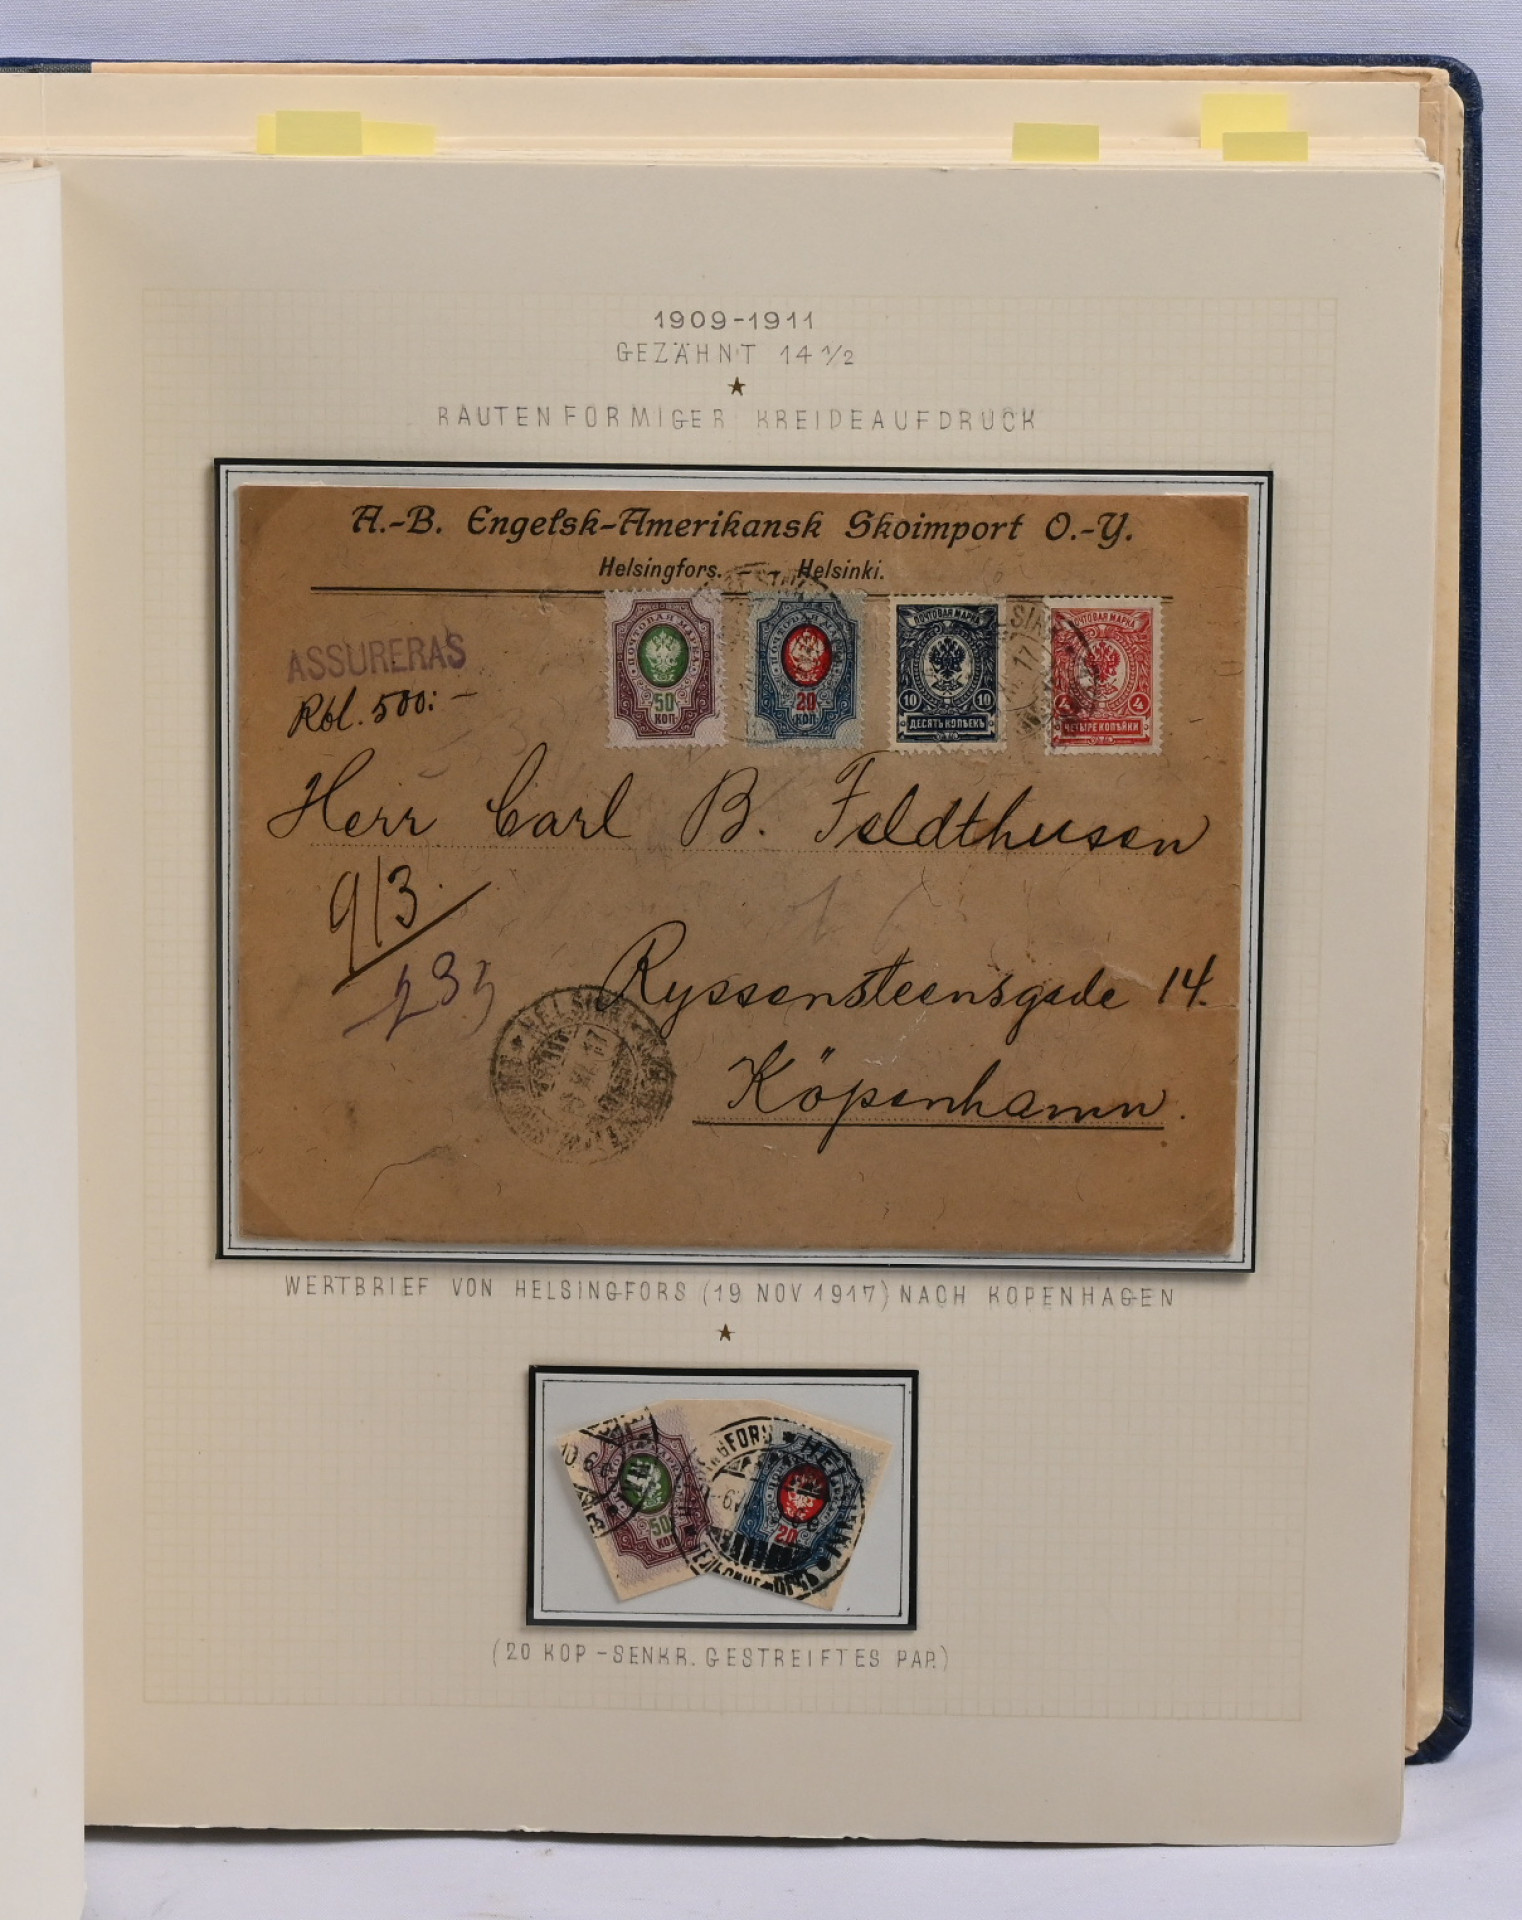 1909-1911
GEZÄHNT 14 1/2
★
RAUTENFÖRMIGER KREIDEAUFDRUCK
A.-B. Engelsk-Amerikansk Skoimport O.-Y.
Helsingfors. — Helsinki.
ASSURERAS
Rbl. 500:-
ПОЧТОВАЯ МАРКА
50
КОП
ПОЧТОВАЯ МАРКА
20
КОП
ПОЧТОВАЯ МАРКА
10 10
ДЕСЯТЬ КОПѢЕКЪ
ПОЧТОВАЯ МАРКА
4 4
ЧЕТЫРЕ КОПѢЙКИ
Herr Carl B. Feldthusen
913
235
Ryssensteensgade 14.
Köpenhamn.
HELSINKI
XI. 17
WERTBRIEF VON HELSINGFORS (19 NOV 1917) NACH KOPENHAGEN
★
50
КОП
20
(20 KOP - SENKR. GESTREIFTES PAP.)